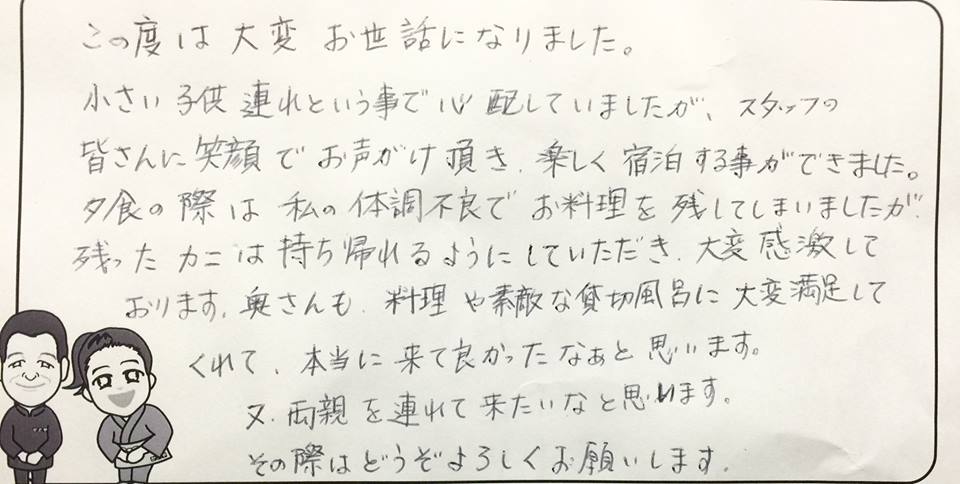 この度は大変お世話になりました。
小さい子供連れという事で心配していましたが、スタッフの
皆さんに笑顔でお声がけ頂き、楽しく宿泊する事ができました。
夕食の際は私の体調不良でお料理を残してしまいましたが、
残ったカニは持ち帰れるようにしていただき、大変感激して
おります。奥さんも、料理や素敵な貸切風呂に大変満足して
くれて、本当に来て良かったなぁと思います。
又、両親を連れて来たいなと思います。
その際はどうぞよろしくお願いします。